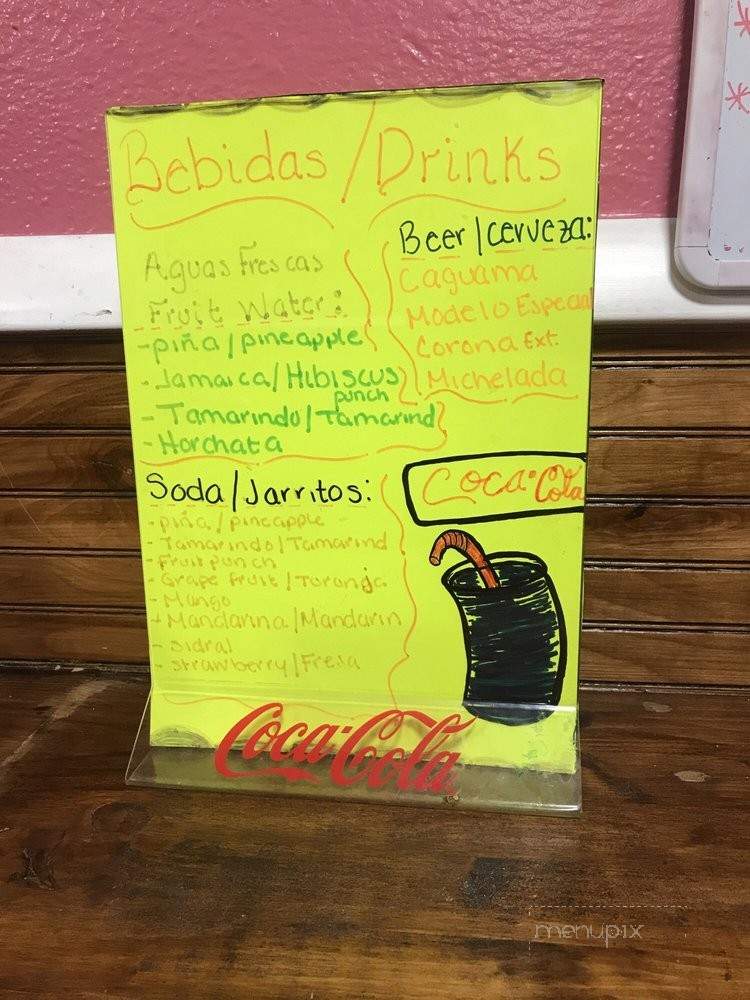 Bebidas/Drinks
Aguas Frescas
Fruit Water:
-piña/pineapple
-Jamaica/Hibiscus
punch
-Tamarindo/Tamarind
-Horchata
Beer/cerveza:
Caguama
Modelo Especial
Corona Ext.
Michelada
Soda/Jarritos:
-piña/pineapple
-Tamarindo/Tamarind
-Fruit punch
-Grape fruit/Toronja
-Mango
-Mandarina/Mandarin
-sidral
-strawberry/Fresa
Coca-Cola
Coca-Cola
menupix